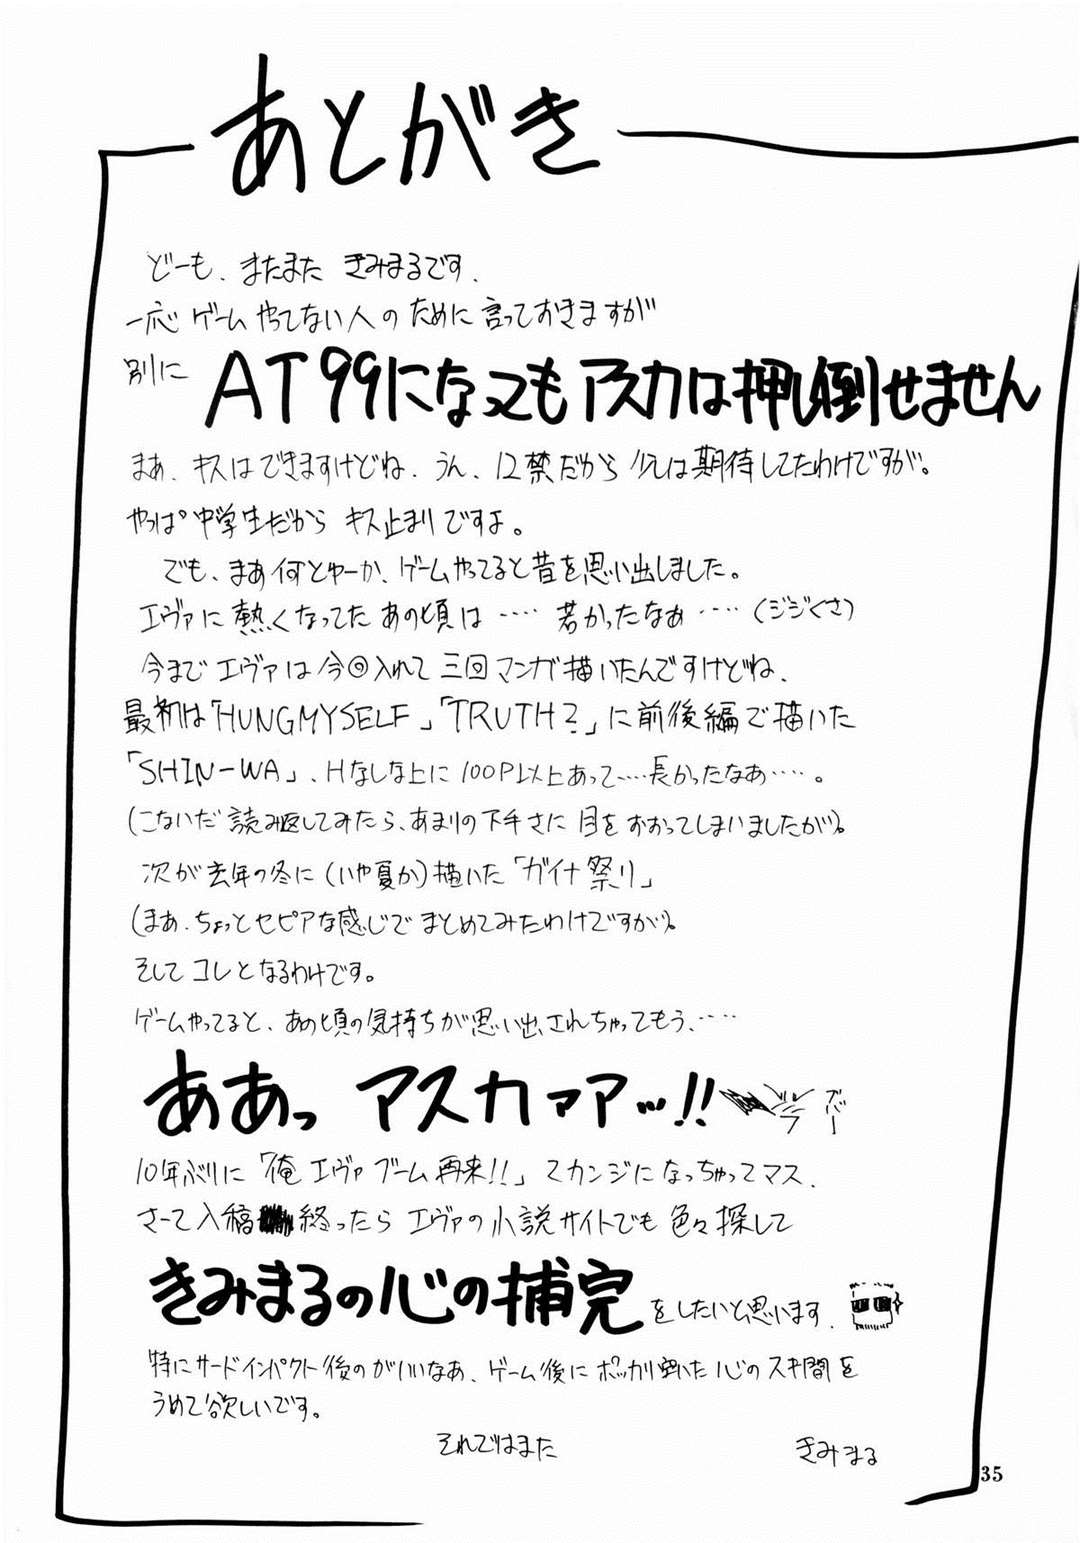 あとがき
どーも、またまた きみまるです.
一応 ゲームやってない人の ために 言っておきますが
別に AT99になっても アスカは押し倒せません
まぁ、キスは できますけどね. うん、12禁だから 少しは期待してたわけですが。
やっぱ中学生だから キス止まりですよ。
でも、まぁ何とゆーか、ゲームやってると昔を思い出しました。
エヴァに 熱くなってた あの頃は‥‥ 若かったなぁ‥‥(ジジくさ)
今まで エヴァは 今回入れて 三回マンガ描いたんですけどね、
最初は「HUNGMYSELF」「TRUTH?」に 前後編で描いた
「SHIN-WA」、Hなしな上に 100P以上あって‥‥長かったなあ‥‥。
(こないだ 読み返してみたら、あまりの下手さに 目をおおってしまいましたが)。
次が 去年の冬に(いや夏か)描いた「ガイナ祭り」
(まあ、ちょっとセピアな感じで まとめてみたわけですが)。
そして コレとなるわけです。
ゲームやってると、あの頃の気持ちが思い出されちゃってもう、‥‥
ああっ アスカァア…!! ズバー
10年ぶりに「俺エヴァブーム再来!!」てカンジに なっちゃってマス.
さーて 入稿 終ったら エヴァの小説サイトでも 色々探して
きみまるの心の補完をしたいと思います.
特にサードインパクト後のがいいなあ、ゲーム後に ポッカリ開いた 心のスキ間を
うめて欲しいです。
それではまた きみまる
35